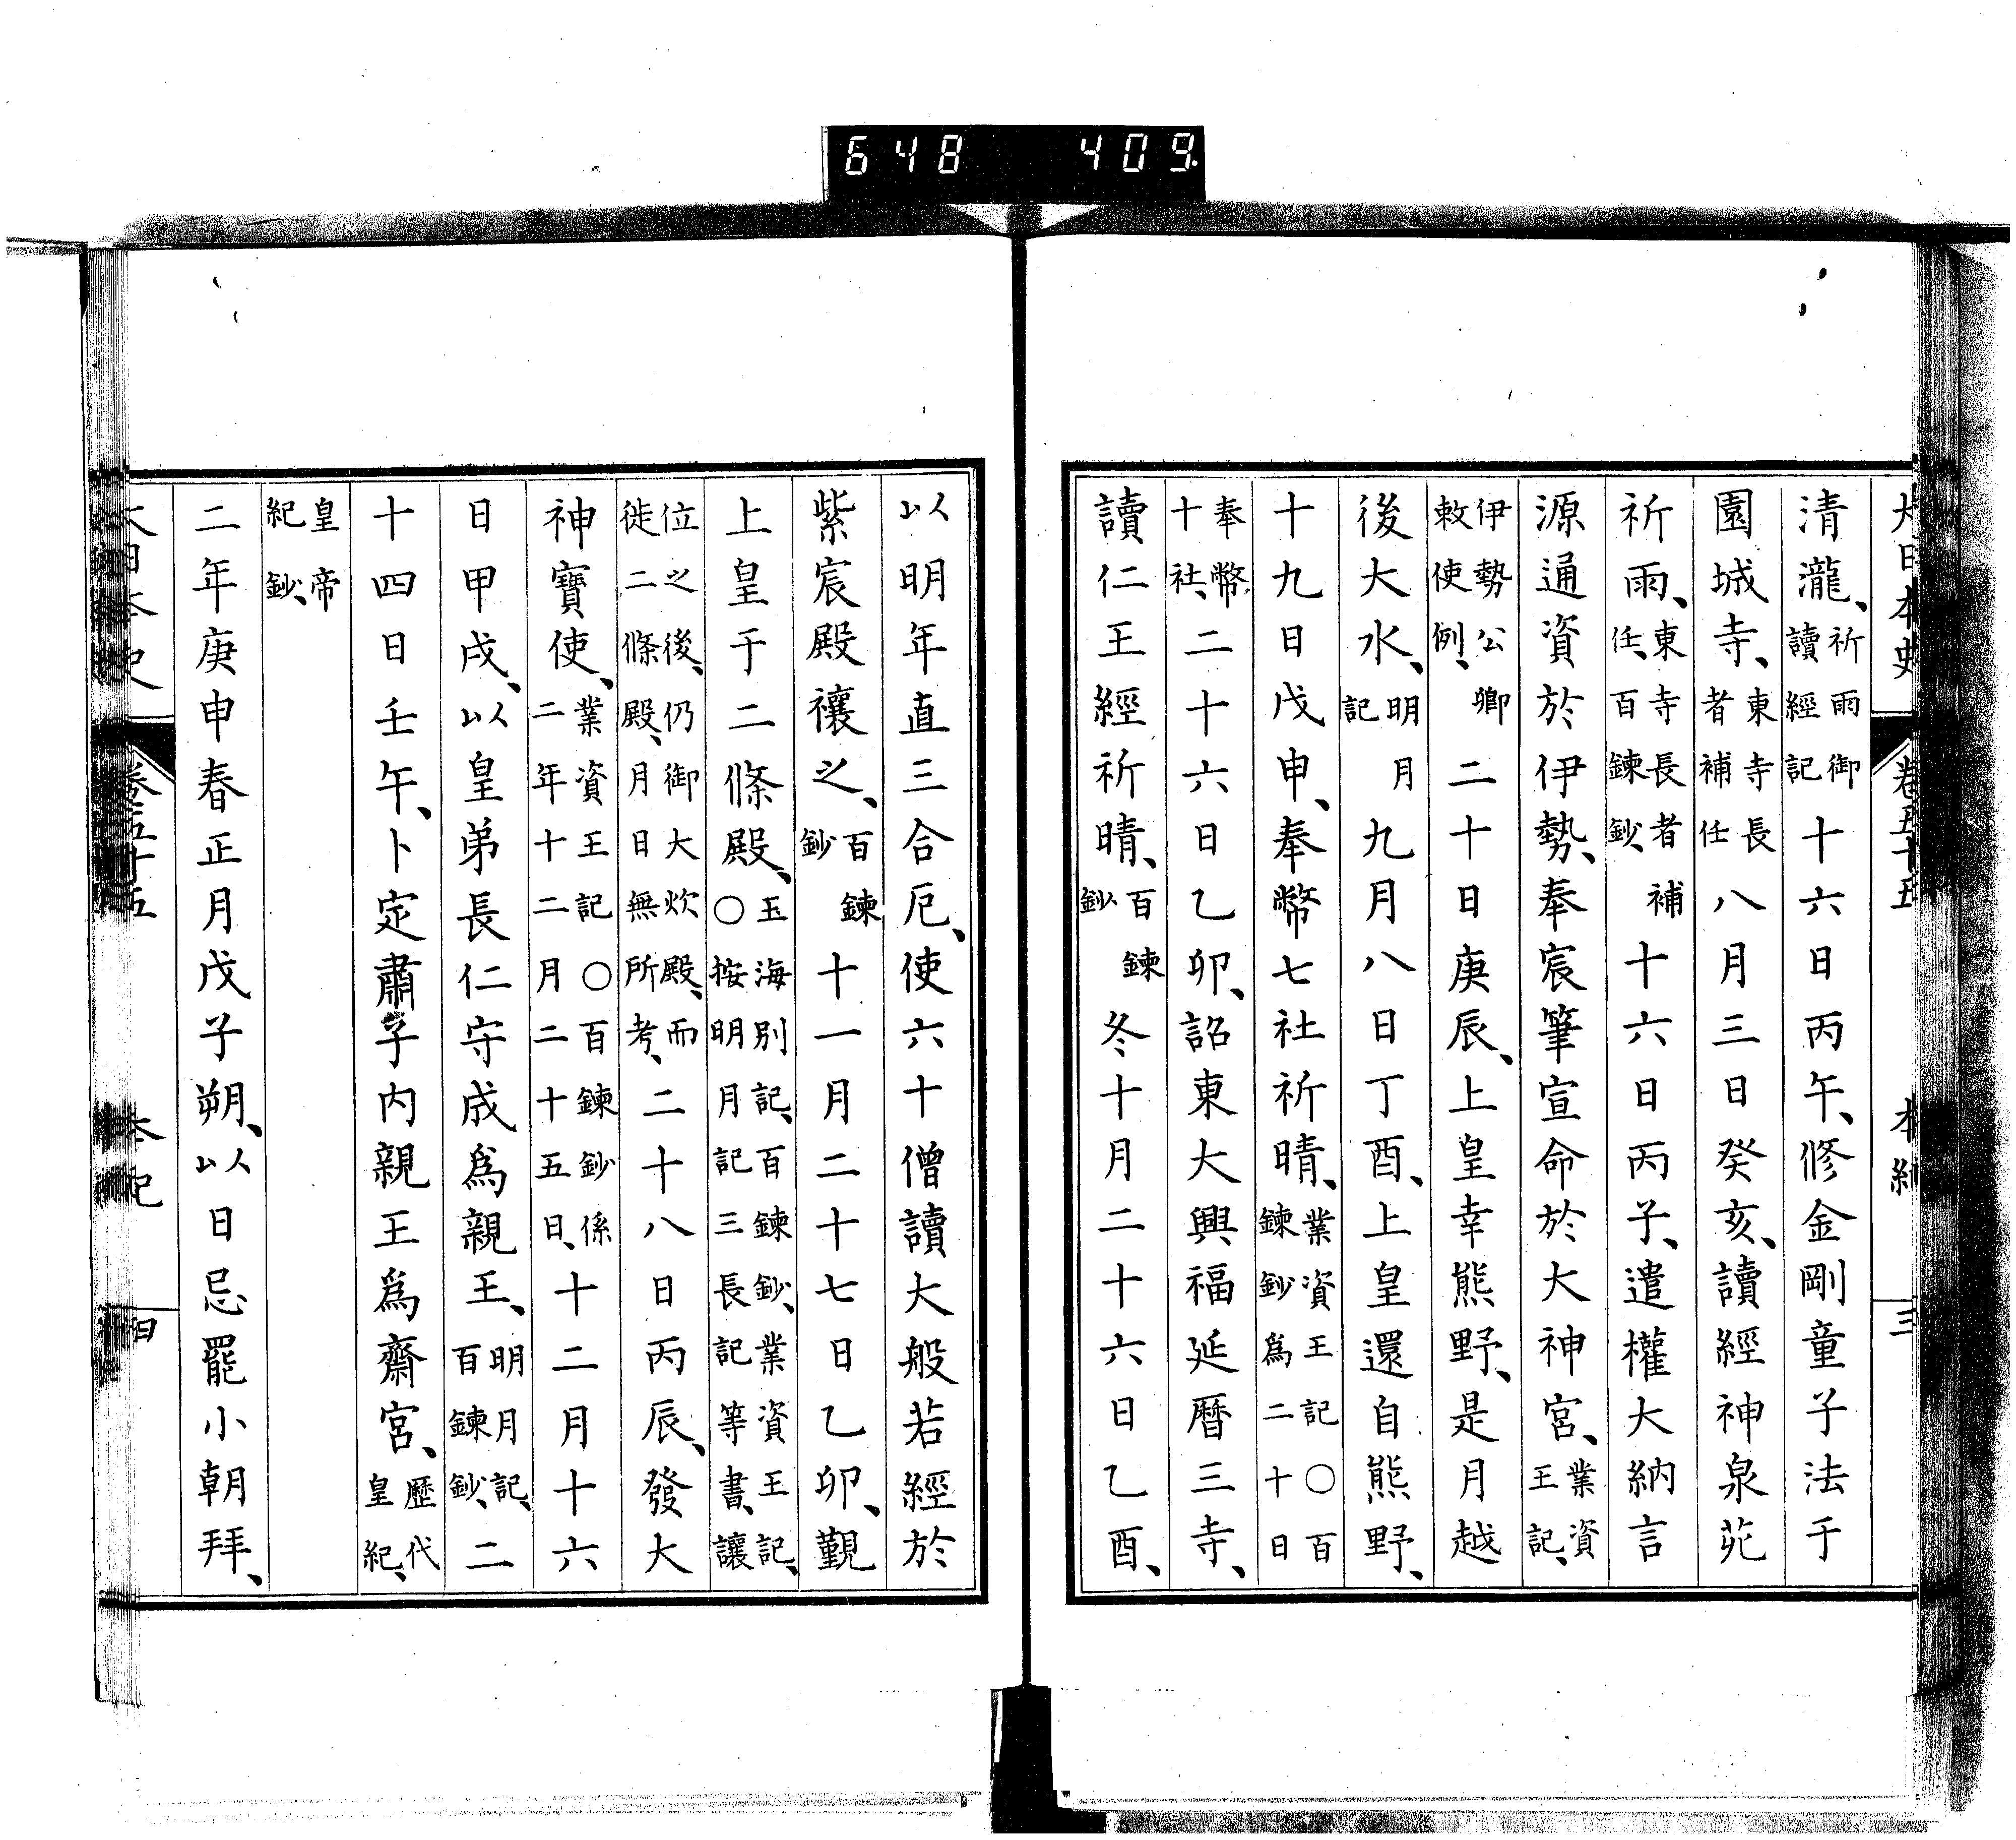 648 409
大日本史 卷五十五 本紀 三
清瀧、祈雨御讀經記十六日丙午、修金剛童子法于
園城寺、東寺長者補任八月三日癸亥、讀經神泉苑
祈雨、東寺長者補任、百鍊鈔、十六日丙子、遣權大納言
源通資於伊勢、奉宸筆宣命於大神宮、業資王記、
伊勢公卿敕使例、二十日庚辰、上皇幸熊野、是月越
後大水、明月記九月八日丁酉、上皇還自熊野、
十九日戊申、奉幣七社祈晴、業資王記○百鍊鈔爲二十日
奉幣十社、二十六日乙卯、詔東大興福延曆三寺、
讀仁王經祈晴、百鍊鈔冬十月二十六日乙酉、
以明年直三合厄、使六十僧讀大般若經於
紫宸殿禳之、百鍊鈔十一月二十七日乙卯、覲
上皇于二條殿、玉海別記、百鍊鈔、業資王記、○按明月記三長記等書、讓
位之後、仍御大炊殿、而徙二條殿、月日無所考、二十八日丙辰、發大
神寶使、業資王記○百鍊鈔係二年十二月二十五日、十二月十六
日甲戌、以皇弟長仁守成爲親王、明月記、百鍊鈔、二
十四日壬午、卜定肅子內親王爲齋宮、歷代皇紀、
皇帝紀鈔、
二年庚申春正月戊子朔、以日忌罷小朝拜、
大日本史 卷五十五 本紀 四